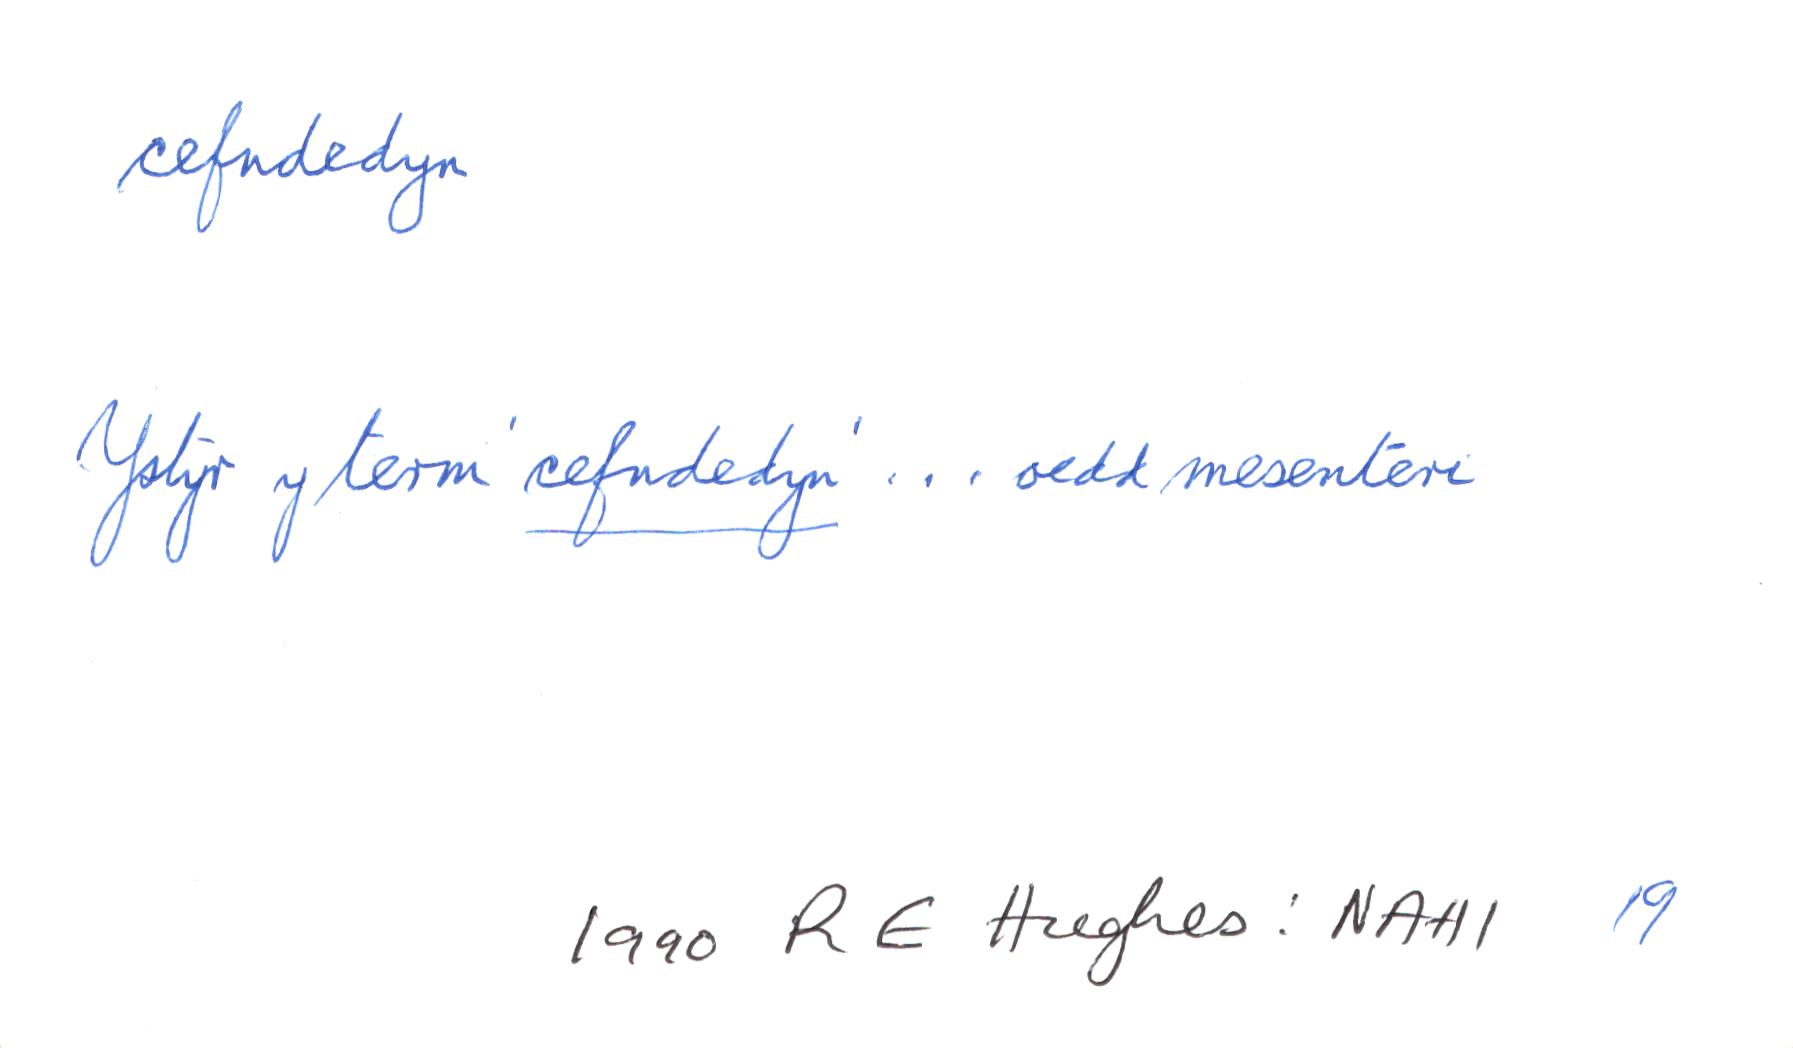 cefndedyn
Ystyr y term 'cefndedyn' ... oedd mesenteri
1990 R E Hughes: NAHI 19